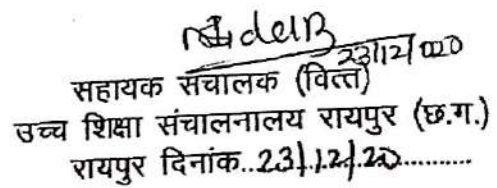 23/12/2020
सहायक संचालक (वित्त)
उच्च शिक्षा संचालनालय रायपुर (छ.ग.)
रायपुर दिनांक..23/12/20...........